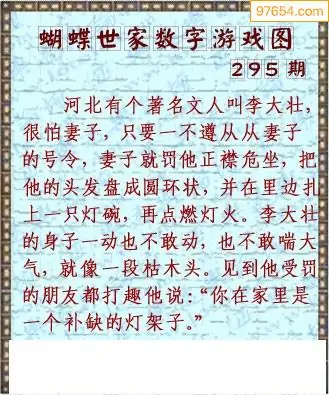 97654.com
蝴蝶世家数字游戏图
295期
河北有个著名文人叫李大壮，
很怕妻子，只要一不遵从从妻子
的号令，妻子就罚他正襟危坐，把
他的头发盘成圆环状，并在里边扎
上一只灯碗，再点燃灯火。李大壮
的身子一动也不敢动，也不敢喘大
气，就像一段枯木头。见到他受罚
的朋友都打趣他说：“你在家里是
一个补缺的灯架子。”